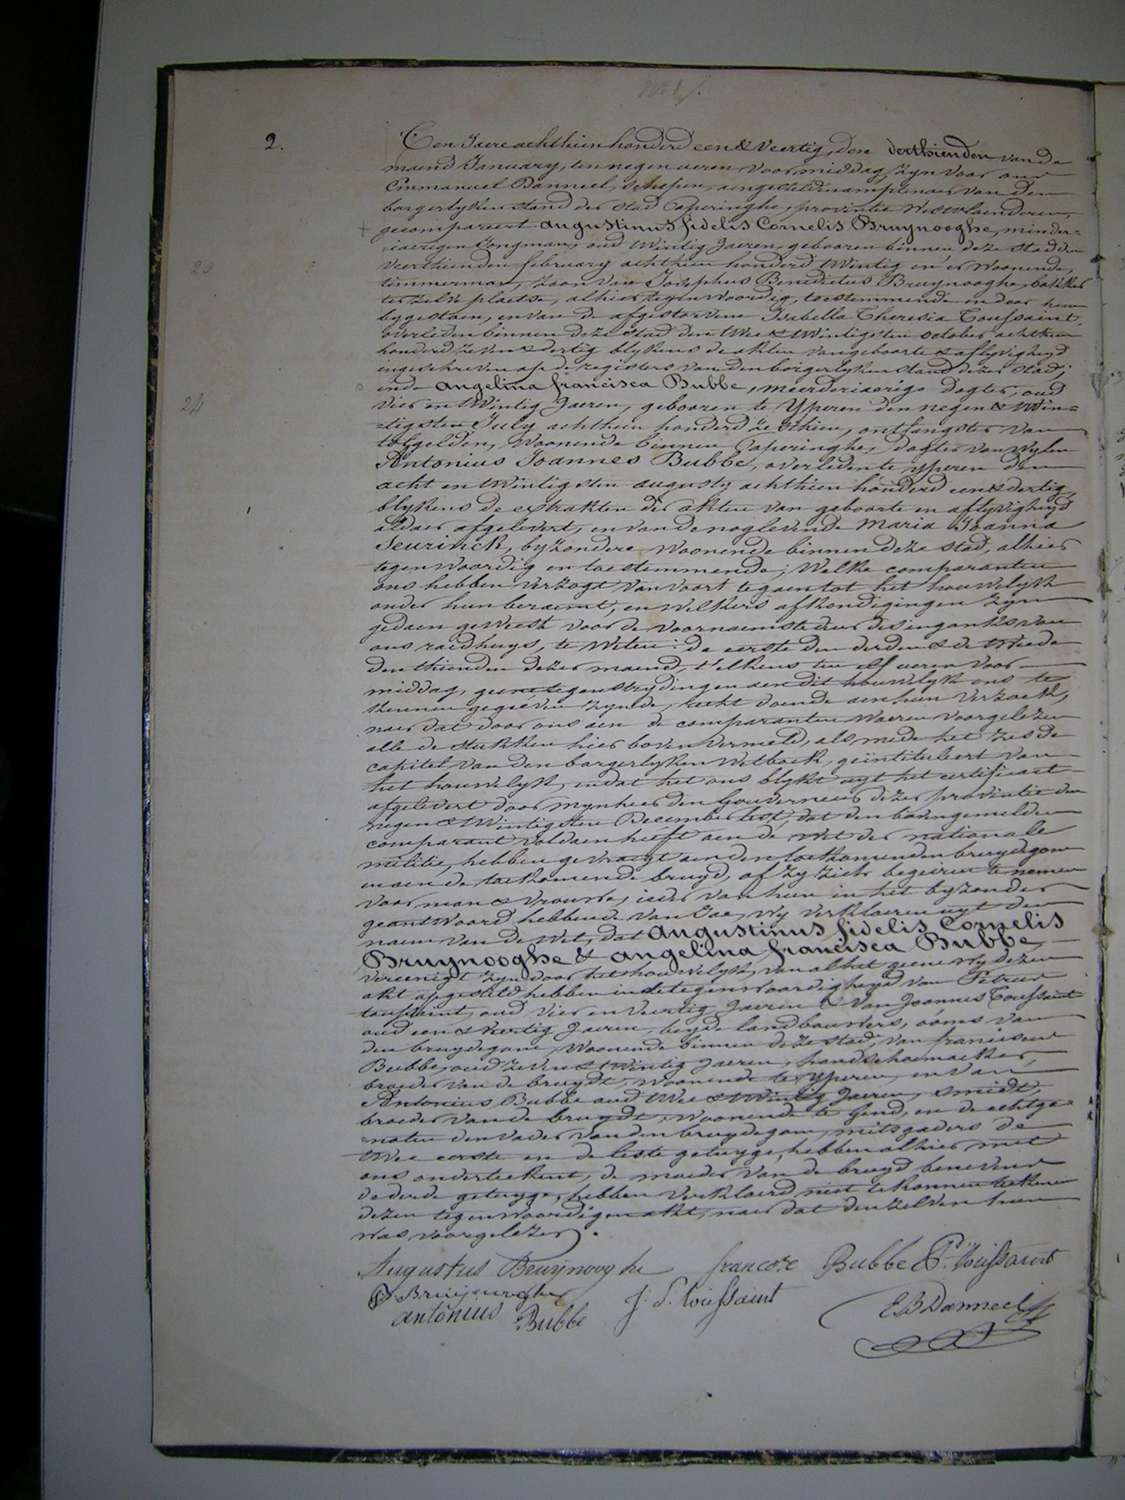 2.
Ten Jaere achthien honderd een & veertig, den derthienden van de
maend January, ten negen ueren voor middag, zyn voor ons
Emmanuel Danneel, schepen, aengesteld in amptenaer van den
borgerlyken stand der stad Poperinghe, provintie Westvlaenderen,
gecompareert Augustinus fidelis Cornelis Bruynooghe, minder-
iaerigen Jongman, oud twintig Jaeren, gebooren binnen deze stad den
veerthienden february achthien honderd twintig en er woonende,
timmerman, zoon van Josephus Benedictus Bruynooghe, bakker
ter zelve plaetse, alhier tegenwoordig, toestemmende en door hem
bygestaen, en van de afgestorvene Isabella Theresia Toussaint,
overleden binnen deze stad den twee & twintigsten october achthien
honderd zeven & dertig blykens de akten van geboorte & aflyvigheyd
ingeschreven op de registers van den borgerlyken stand dezer stad;
ende Angelina francisca Bubbe, meerderiaerige Dogter, oud
24
vier en twintig Jaeren, gebooren te Yperen den negen & twin-
tigsten July achthien honderd zesthien, ontfangster van
tolgelden, woonende binnen Poperinghe, dogter van wylen
Antonius Joannes Bubbe, overleden te yperen den
acht en twintigsten augusty achthien honderd een & dertig,
blykens de extrakten der akten van geboorte en aflyvigheyd
aldaer afgelevert, en van de noglevende Maria Joanna
Seurinck, byzondere woonende binnen deze stad, alhier
tegenwoordig en toestemmende; Welke comparanten
ons hebben verzogt van voort te gaen tot het houwelyk
onder hun beraemt, en welkers afkondigingen zyn
gedaen geweest voor de voornaemste deur des ingangs van
ons raedhuys, te weten: de eerste den derden & de tweede
den thienden dezer maend, t'elkens ten elf ueren voor
middag, geene tegenstrydingen aen dit houwelyk ons te
kennen gegeven zynde, recht doende aen hun verzoek,
naer dat door ons aen de comparanten waeren voorgelezen
alle de stukken hier boven vermeld, als mede het zesde
capitel van den borgerlyken Wetboek, geintituleert van
het houwelyk, en dat het ons blykt uyt het certificaet
afgelevert door mynheer den Gouverneur dezer provintie den
negen & twintigsten December lest, dat den bovengemelden
comparant voldaen heeft aen de wet der nationale
militie, hebben gevraegt aen den toekomenden bruydegom
en aen de toekomende bruyd, of zy zich begeiren te nemen
voor man & vrouwe, ieder van hun in het byzonder
geantwoord hebbende van Jae, wy verklaeren uyt den
naem van de Wet, dat Augustinus fidelis Cornelis
Bruynooghe & Angelina francisca Bubbe
vereenigt zyn door het houwelyk, van al het geene wy dezen
akt opgesteld hebben in de tegenwoordigheyd van Petrus
toussaint, oud vier en veertig Jaeren & van Joannes Toussaint
oud een & veertig Jaeren, beyde landbouwers, ooms van
den bruydegom, woonende binnen deze stad, van franciscus
Bubbe, oud zeven & twintig Jaeren, handschoemaeker,
broeder van de bruydt, woonende te yperen, en van
Antonius Bubbe oud twee & twintig Jaeren, smidt,
broeder van de bruydt, woonende te Gend, en de echtge-
noten den vader van den bruydegom, mitsgaders de
twee eerste en de leste getuyge, hebben alhier met
ons onderteekent, de moeder van de bruyd benevens
de derde getuyge, hebben verklaerd niet te konnen teekenen
dezen tegenwoordigen akt, naer dat den zelven hun
was voorgelezen.
Augustus Bruynooghe francois Bubbe P. Toussaint
Bruynooghe J. L. Toussaint E B Danneel
antonius Bubbe